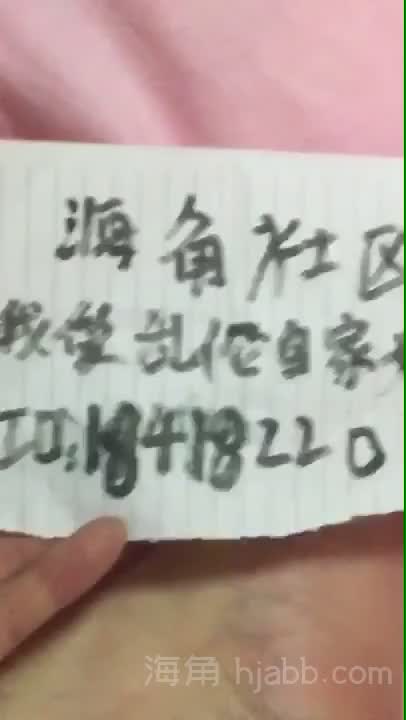 海角社区
我 乱伦自家
ID:18418220
海角 hjabb.com